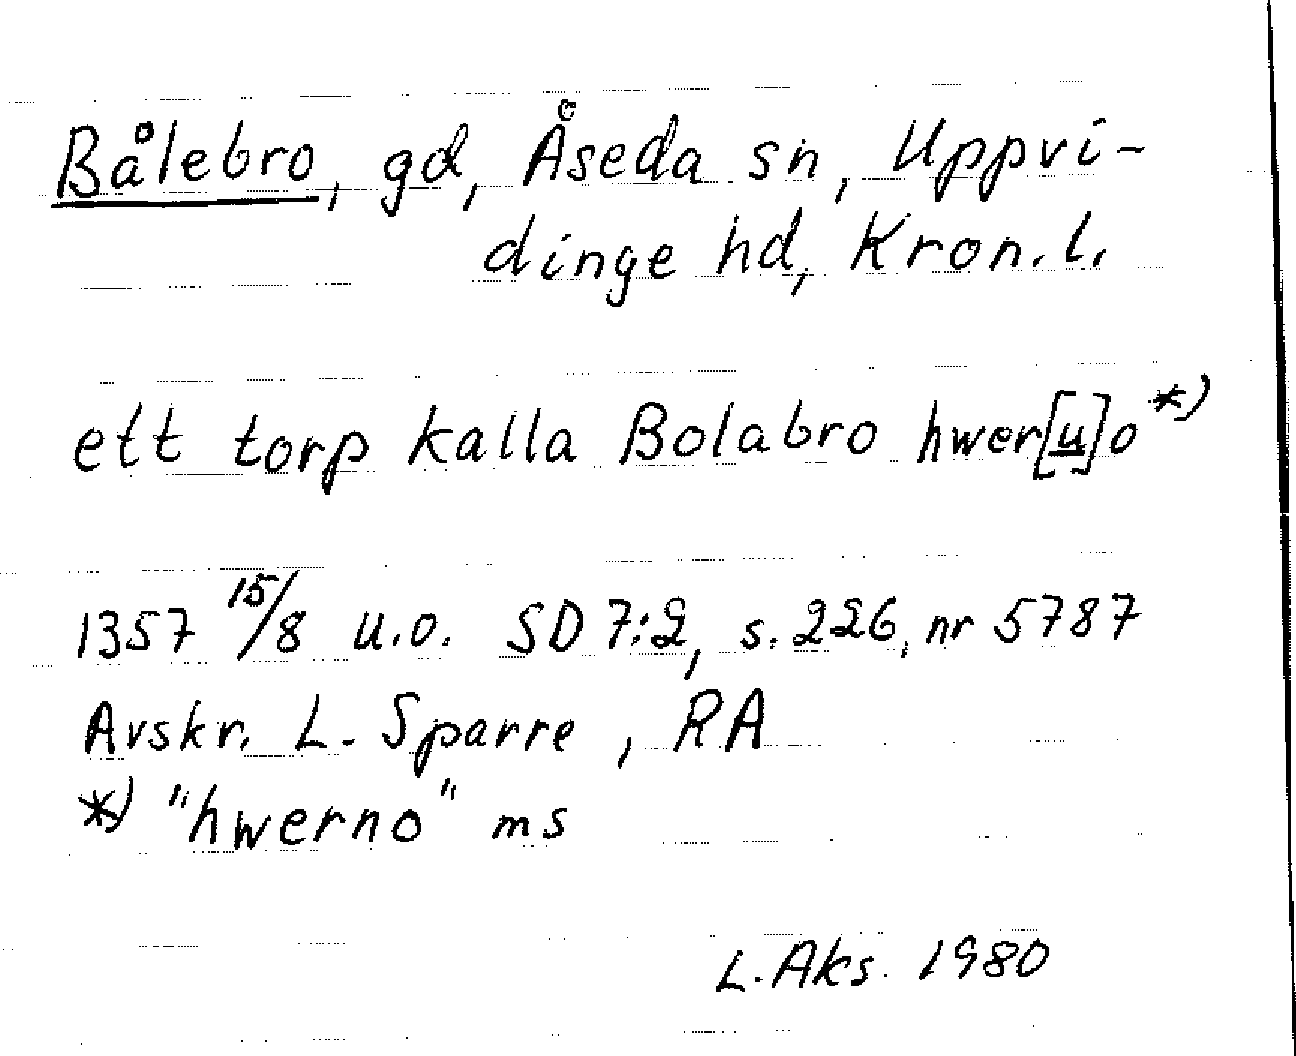 Bålebro, gd, Åseda sn, Uppvi-
dinge hd, Kron. l.
ett torp kalla Bolabro hwer[u]o *)
1357 15/8 u.o. SD 7:2, s. 226, nr 5787
Avskr. L. Sparre, RA
*) "hwerno" ms
L. Aks. 1980